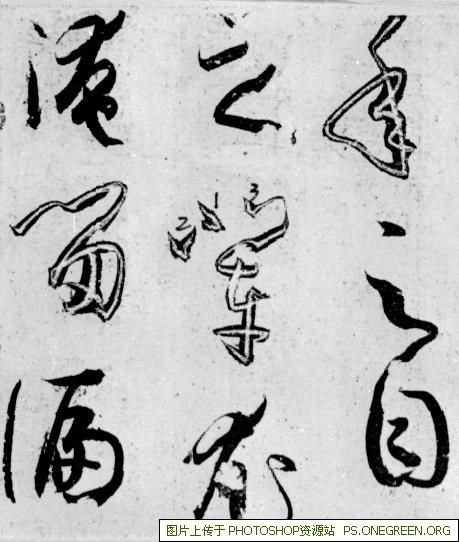 之目
之輩
淹留偏
图片上传于PHOTOSHOP资源站 PS.ONEGREEN.ORG